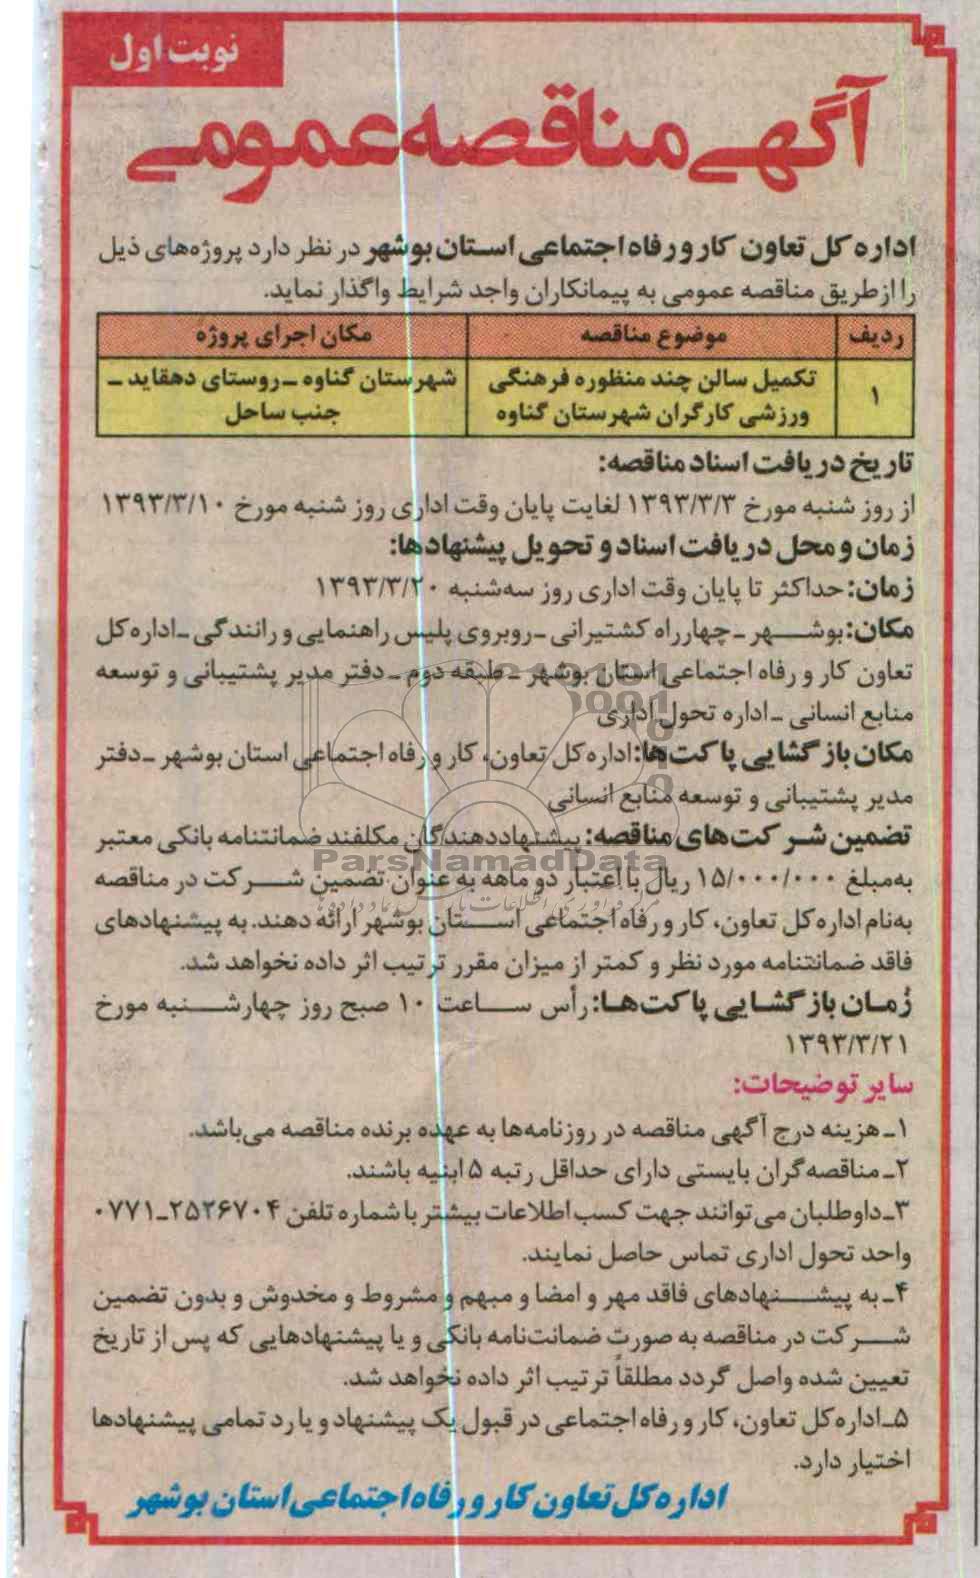 نوبت اول
آگهی مناقصه عمومی
اداره کل تعاون کار و رفاه اجتماعی استان بوشهر در نظر دارد پروژه‌های ذیل
را از طریق مناقصه عمومی به پیمانکاران واجد شرایط واگذار نماید.
ردیف موضوع مناقصه مکان اجرای پروژه
۱ تکمیل سالن چند منظوره فرهنگی ورزشی کارگران شهرستان گناوه شهرستان گناوه ـ روستای دهقاید ـ جنب ساحل
تاریخ دریافت اسناد مناقصه:
از روز شنبه مورخ ۱۳۹۳/۳/۳ لغایت پایان وقت اداری روز شنبه مورخ ۱۳۹۳/۳/۱۰
زمان و محل دریافت اسناد و تحویل پیشنهادها:
زمان: حداکثر تا پایان وقت اداری روز سه‌شنبه ۱۳۹۳/۳/۲۰
مکان: بوشهر ـ چهارراه کشتیرانی ـ روبروی پلیس راهنمایی و رانندگی ـ اداره کل
تعاون کار و رفاه اجتماعی استان بوشهر ـ طبقه دوم ـ دفتر مدیر پشتیبانی و توسعه
منابع انسانی ـ اداره تحول اداری
مکان بازگشایی پاکت‌ها: اداره کل تعاون، کار و رفاه اجتماعی استان بوشهر ـ دفتر
مدیر پشتیبانی و توسعه منابع انسانی
تضمین شرکت‌های مناقصه: پیشنهاددهندگان مکلفند ضمانتنامه بانکی معتبر
ParsNamadData
به‌مبلغ ۱۵/۰۰۰/۰۰۰ ریال با اعتبار دو ماهه به عنوان تضمین شرکت در مناقصه
به‌نام اداره کل تعاون، کار و رفاه اجتماعی استان بوشهر ارائه دهند. به پیشنهادهای
فاقد ضمانتنامه مورد نظر و کمتر از میزان مقرر ترتیب اثر داده نخواهد شد.
زمان بازگشایی پاکت‌ها: رأس ساعت ۱۰ صبح روز چهارشنبه مورخ
۱۳۹۳/۳/۲۱
سایر توضیحات:
۱ـ هزینه درج آگهی مناقصه در روزنامه‌ها به عهده برنده مناقصه می‌باشد.
۲ـ مناقصه‌گران بایستی دارای حداقل رتبه ۵ ابنیه باشند.
۳ـ داوطلبان می‌توانند جهت کسب اطلاعات بیشتر با شماره تلفن ۲۵۲۶۷۰۴ـ۰۷۷۱
واحد تحول اداری تماس حاصل نمایند.
۴ـ به پیشنهادهای فاقد مهر و امضا و مبهم و مشروط و مخدوش و بدون تضمین
شرکت در مناقصه به صورت ضمانت‌نامه بانکی و یا پیشنهادهایی که پس از تاریخ
تعیین شده واصل گردد مطلقاً ترتیب اثر داده نخواهد شد.
۵ـ اداره کل تعاون، کار و رفاه اجتماعی در قبول یک پیشنهاد و یا رد تمامی پیشنهادها
اختیار دارد.
اداره کل تعاون کار و رفاه اجتماعی استان بوشهر